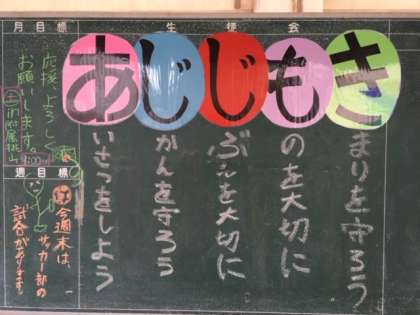 月目標
生徒会
きまりを守ろう
ものを大切に
じぶんを大切に
じかんを守ろう
あいさつをしよう
応援、よろしく
お願いします。
附属桃山
9:00〜
週目標
今週末は、
サッカー部の
試合があります。